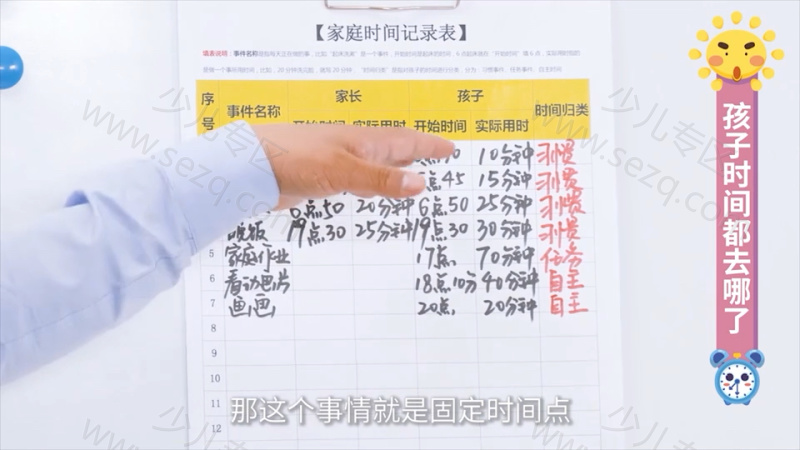 【家庭时间记录表】
填表说明：事件名称
序号 事件名称 家长 孩子 时间归类
开始时间 实际用时 开始时间 实际用时
10分钟 习惯
点45 15分钟 习惯
点50 20分钟 6点50 25分钟 习惯
晚饭 19点30 25分钟 19点30 30分钟 习惯
5 家庭作业 17点 70分钟 任务
6 看动画片 18点10分 40分钟 自主
7 画画 20点 20分钟 自主
8
9
10
11
12
孩子时间都去哪了
那这个事情就是固定时间点
少儿专区
www.sezq.com